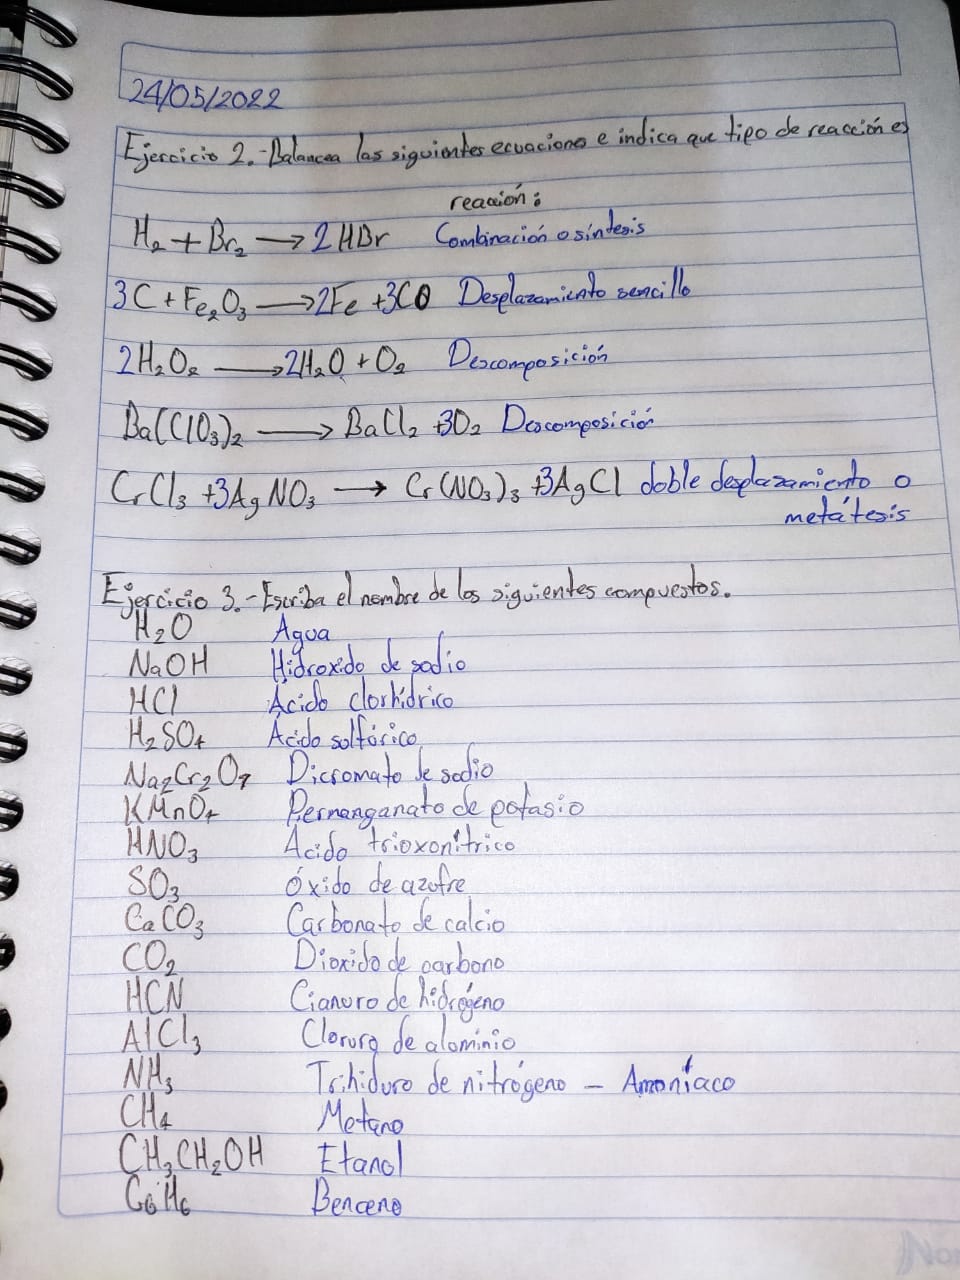 24/05/2022
Ejercicio 2.- Balancea las siguientes ecuaciones e indica que tipo de reacción es
reacción:
H₂ + Br₂ → 2HBr Combinación o síntesis
3C + Fe₂O₃ → 2Fe + 3CO Desplazamiento sencillo
2H₂O₂ → 2H₂O + O₂ Descomposición
Ba(ClO₃)₂ → BaCl₂ + 3O₂ Descomposición
CrCl₃ + 3AgNO₃ → Cr(NO₃)₃ + 3AgCl doble desplazamiento o
metátesis
Ejercicio 3.- Escriba el nombre de los siguientes compuestos.
H₂O Agua
NaOH Hidroxido de sodio
HCl Ácido clorhídrico
H₂SO₄ Acido solfúrico
Na₂Cr₂O₇ Dicromato de sodio
KMnO₄ Permanganato de potasio
HNO₃ Acido trioxonítrico
SO₃ óxido de azofre
CaCO₃ Carbonato de calcio
CO₂ Dioxido de carbono
HCN Cianuro de hidrógeno
AlCl₃ Cloruro de aluminio
NH₃ Trihiduro de nitrógeno – Amoníaco
CH₄ Metano
CH₃CH₂OH Etanol
C₆H₆ Benceno